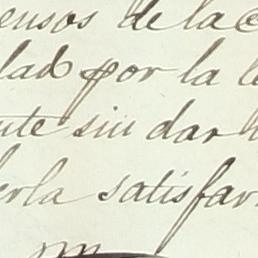 ensos de la C
dad por la le
nte sin dar l
erla satisfar